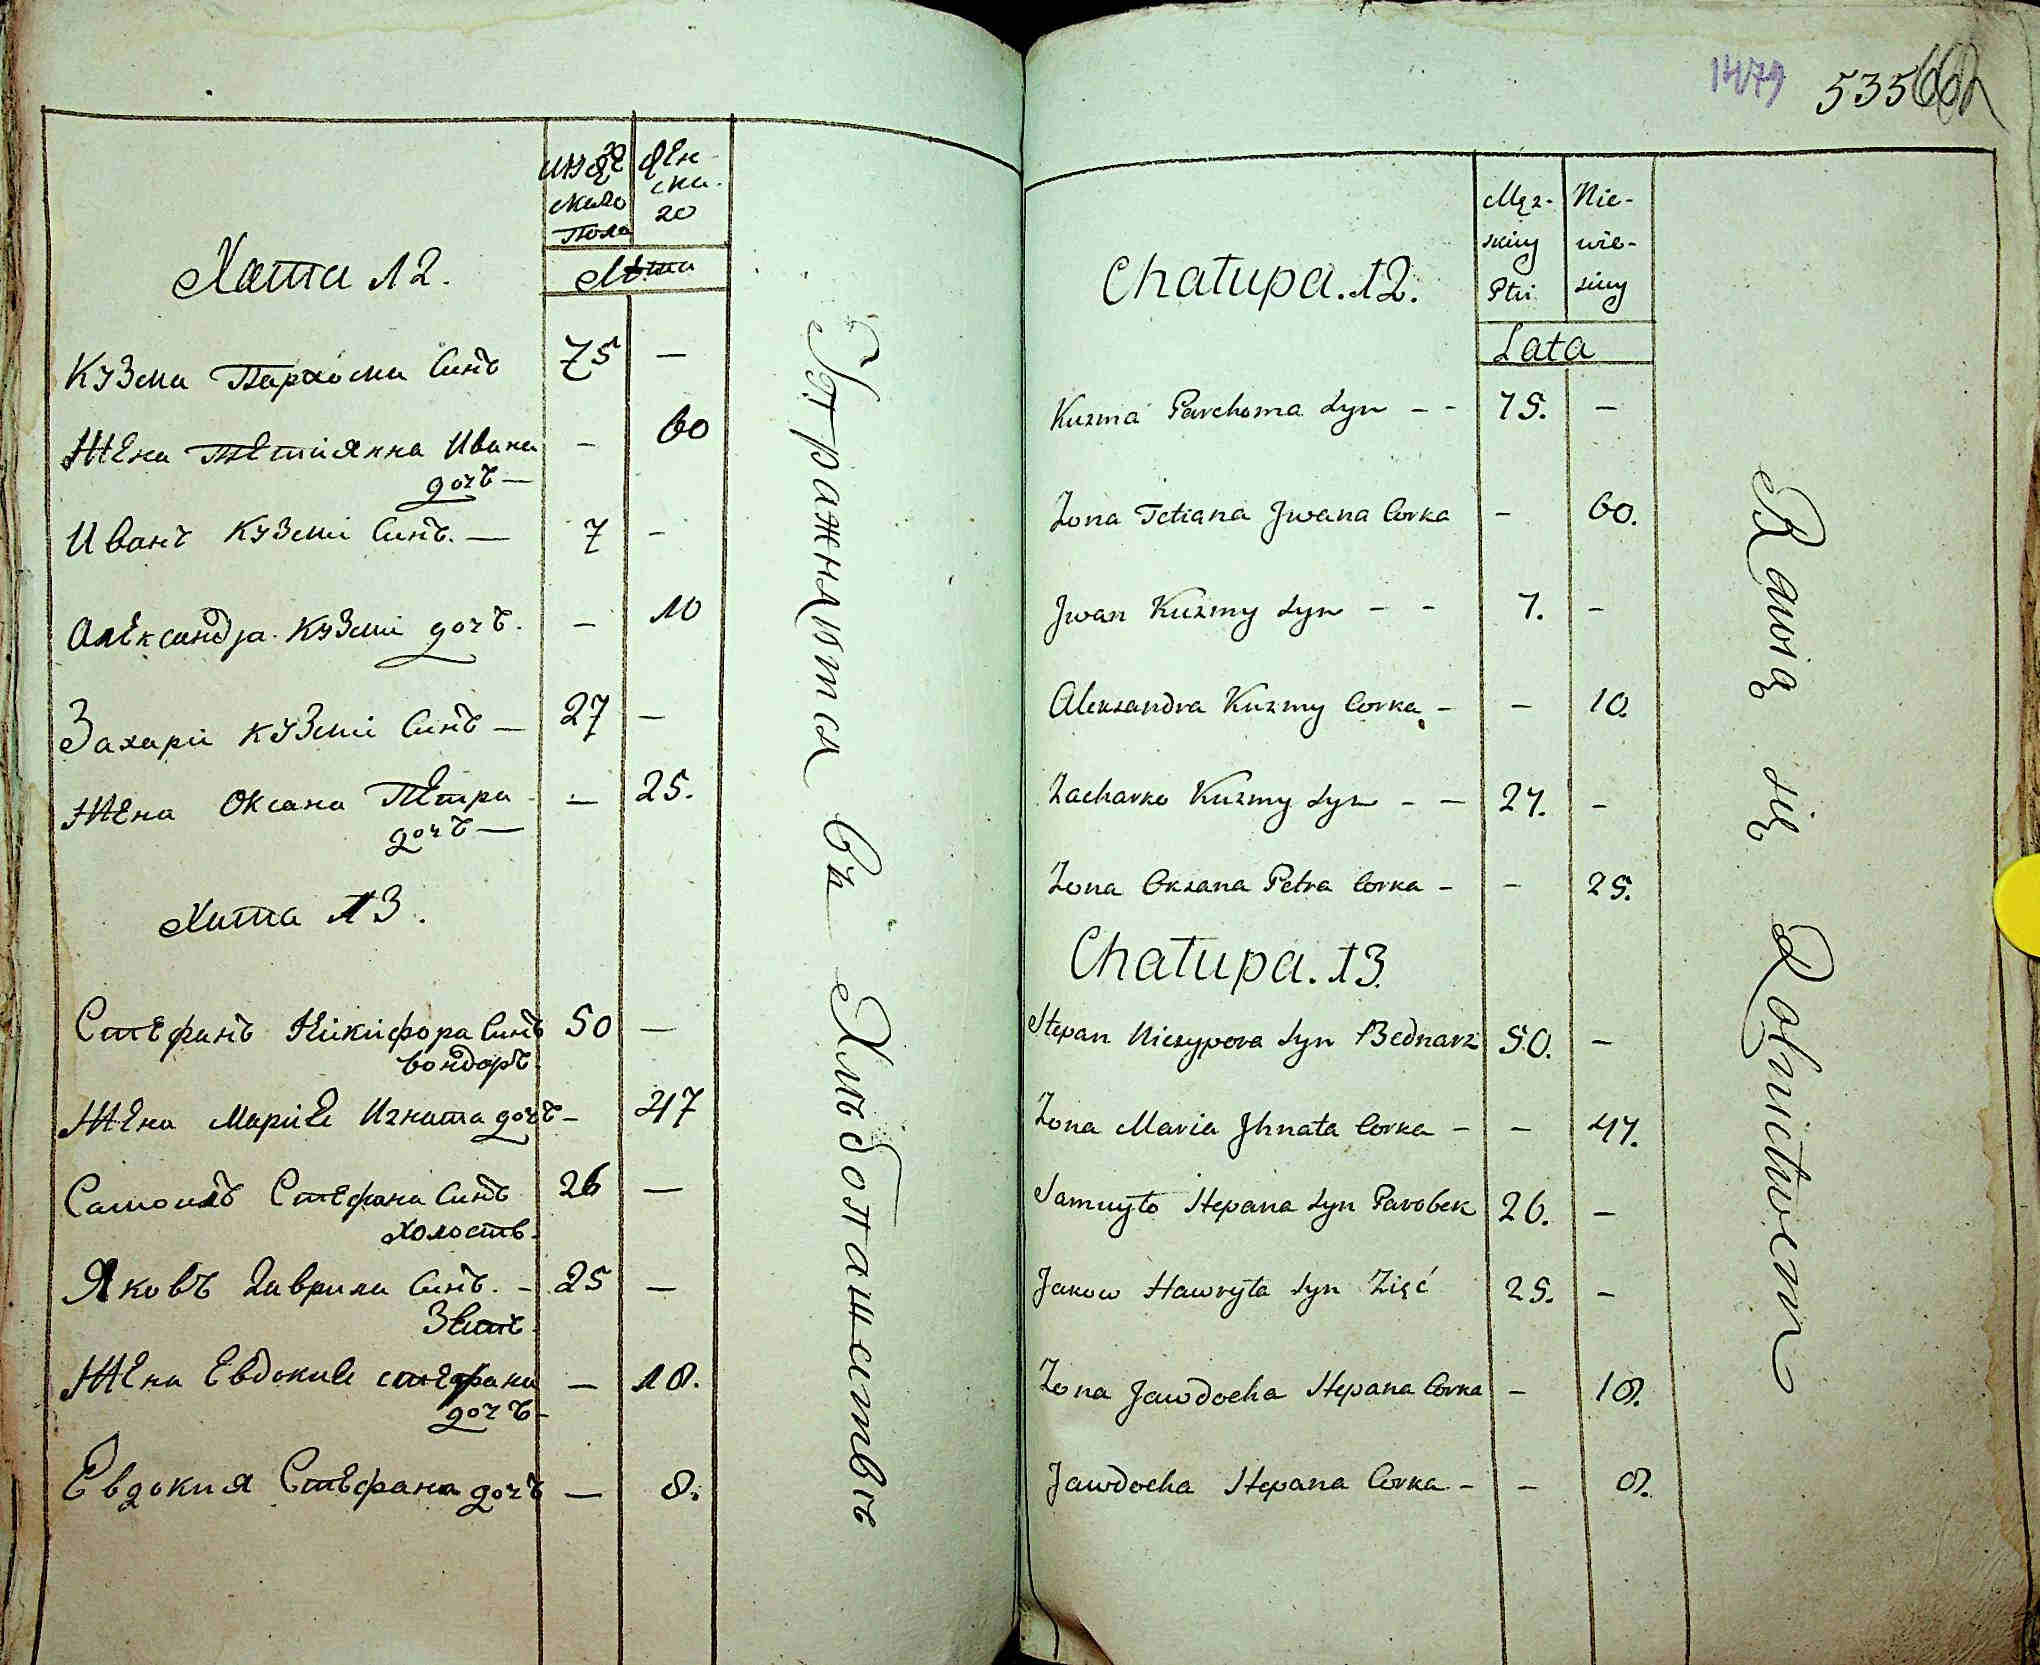 мужескаго Пола
женскаго
Лѣта
Хата 12.
Кузма Пархома Синъ 75 —
Жена Тетиянна Ивана — 60
дочъ —
Иванъ Кузмі Синъ. — 7 —
Александра Кузмі дочъ. — 10
Захарій Кузмі Синъ — 27 —
Жена Оксана Петра — 25.
дочъ —
Хата 13.
Стефанъ Никифора Синъ 50 —
бондаръ.
Жена Марие Игната дочъ — 47
Самоилъ Стефана Синъ 26 —
холостъ.
Яковъ Гаврила Синъ. — 25 —
Зять.
Жена Евдокие стефана — 18.
дочъ —
Евдокия Стефана дочъ — 8.
Упражняются въ Хлѣбопашествѣ
1479 535
Męz-
skiey
Płci
Nie-
wie-
sciey
Lata
Chałupa. 12.
Kuzma Parchoma Syn - - 75. —
Zona Tetiana Jwana Corka — 60.
Jwan Kuzmy Syn - - 7. —
Alexandra Kuzmy Corka - — 10.
Zacharko Kuzmy Syn - - 27. —
Zona Oxana Petra Corka - — 25.
Chałupa. 13.
Stepan Niczypora Syn Bednarz 50. —
Zona Maria Jhnata Corka - — 47.
Samuyło Stepana Syn Parobek 26. —
Jakow Hawryła Syn Zięć 25. —
Zona Jawdocha Stepana Corka — 18.
Jawdocha Stepana Corka - — 8.
Bawią się Rolnictwem